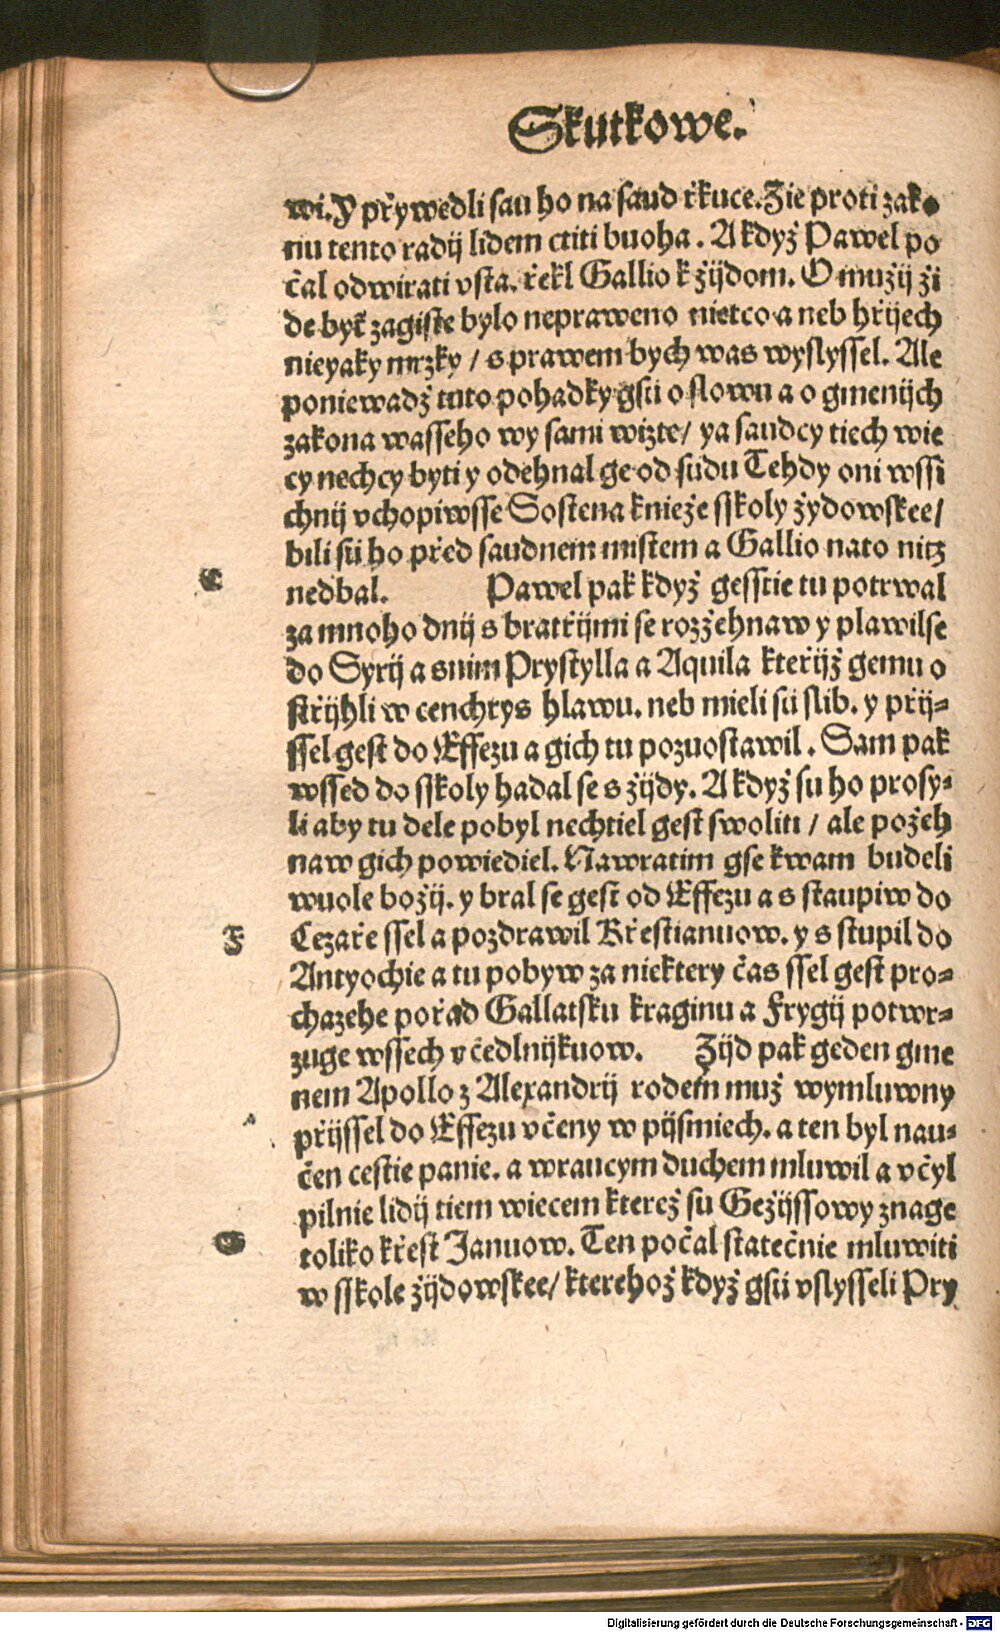 Skutkowe.
wi. Y přywedli sau ho na saud řkuce. Zie proti zako
nu tento radij lidem ctiti buoha. A kdyż Pawel po
čal odwirati vsta. řekl Gallio k żijdom. O mużij żi
de byť zagiste bylo nepraweno nietco a neb hřijech
nieyaky mrzky / s prawem bych was wyslyssel. Ale
poniewadż tuto pohadky gsú o slowu a o gmenijch
zakona wasseho wy sami wizte / ya saudcy tiech wie
cy nechcy byti y odehnal ge od sudu Tehdy oni wssi
chnij vchopiwsse Sostena knieże sskoly żydowskee /
bili sú ho před saudnem mistem a Gallio nato nitz
nedbal. Pawel pak kdyż gesstie tu potrwal
E
za mnoho dnij s bratřijmi se rozżehnaw y plawil se
do Syrij a snim Prystylla a Aquila kteřijż gemu o
střijhli w cenchrys hlawu. neb mieli sú slib. y přij=
ssel gest do Effezu a gich tu pozuostawil. Sam pak
wssed do sskoly hadal se s żijdy. A kdyż su ho prosy=
li aby tu dele pobyl nechtiel gest swoliti / ale pożeh
naw gich powiediel. Nawratim gse kwam budeli
wuole bożij. y bral se gest od Effezu a s staupiw do
F
Cezaře ssel a pozdrawil Křestianuow. y s stupil do
Antyochie a tu pobyw za niektery čas ssel gest pro=
chazege pořad Gallatsku kraginu a Frygij potwr=
zuge wssech včedlnijkuow. Żijd pak geden gme
nem Apollo z Alexandrij rodem muż wymluwny
přijssel do Effezu včeny w pijsmiech. a ten byl nau=
čen cestie panie. a wraucym duchem mluwil a včyl
pilnie lidij tiem wiecem ktereż su Geżijssowy znage
G
toliko křest Januow. Ten počal statečnie mluwiti
w sskole żijdowskee / kterehoż kdyż gsú vslysseli Pry
Digitalisierung gefördert durch die Deutsche Forschungsgemeinschaft - DFG